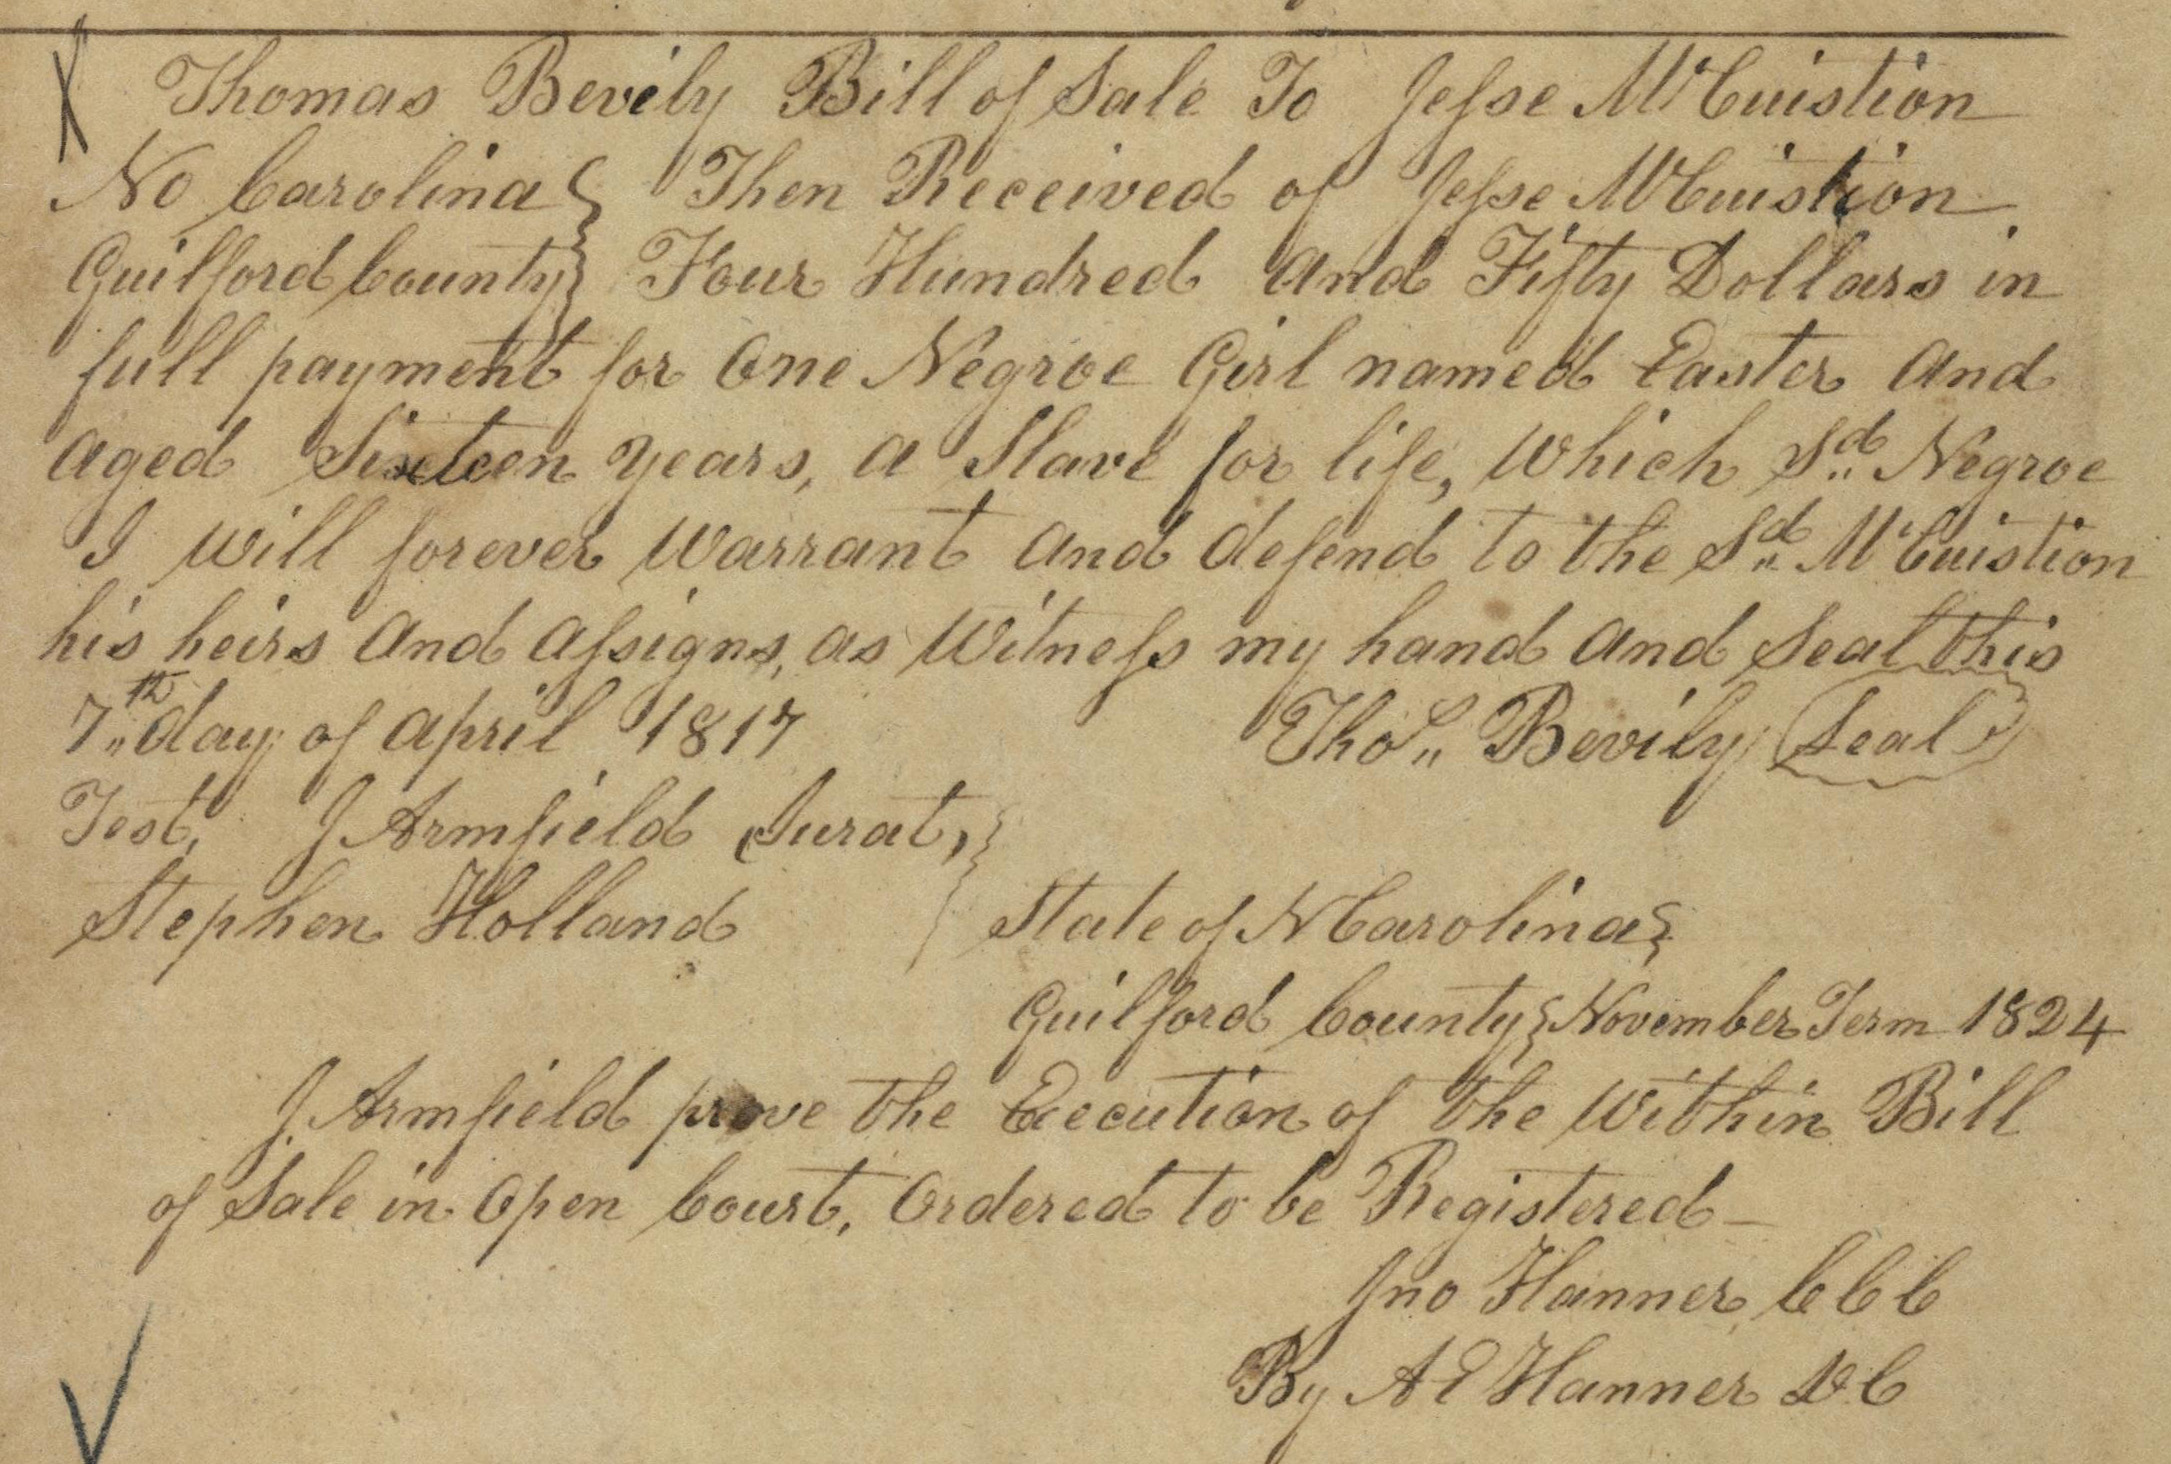 Thomas Bevily Bill of Sale To Jesse McCuistion
No Carolina } Then Received of Jesse McCuistion
Guilford County } Four Hundred and Fifty Dollars in
full payment for One Negroe Girl named Easter and
aged Sixteen years, a Slave for life, Which Sd Negroe
I will forever Warrant and defend to the Sd McCuistion
his heirs and assigns, as Witness my hand and Seal this
7th day of april 1817 Thos Bevily Seal
Test, J Armfield Jurat,
Stephen Holland
State of N Carolina }
Guilford County } November Term 1824
J. Armfield prove the Execution of the Within Bill
of Sale in Open Court, Ordered to be Registered—
Jno Hanner C C C
By A E Hanner D C